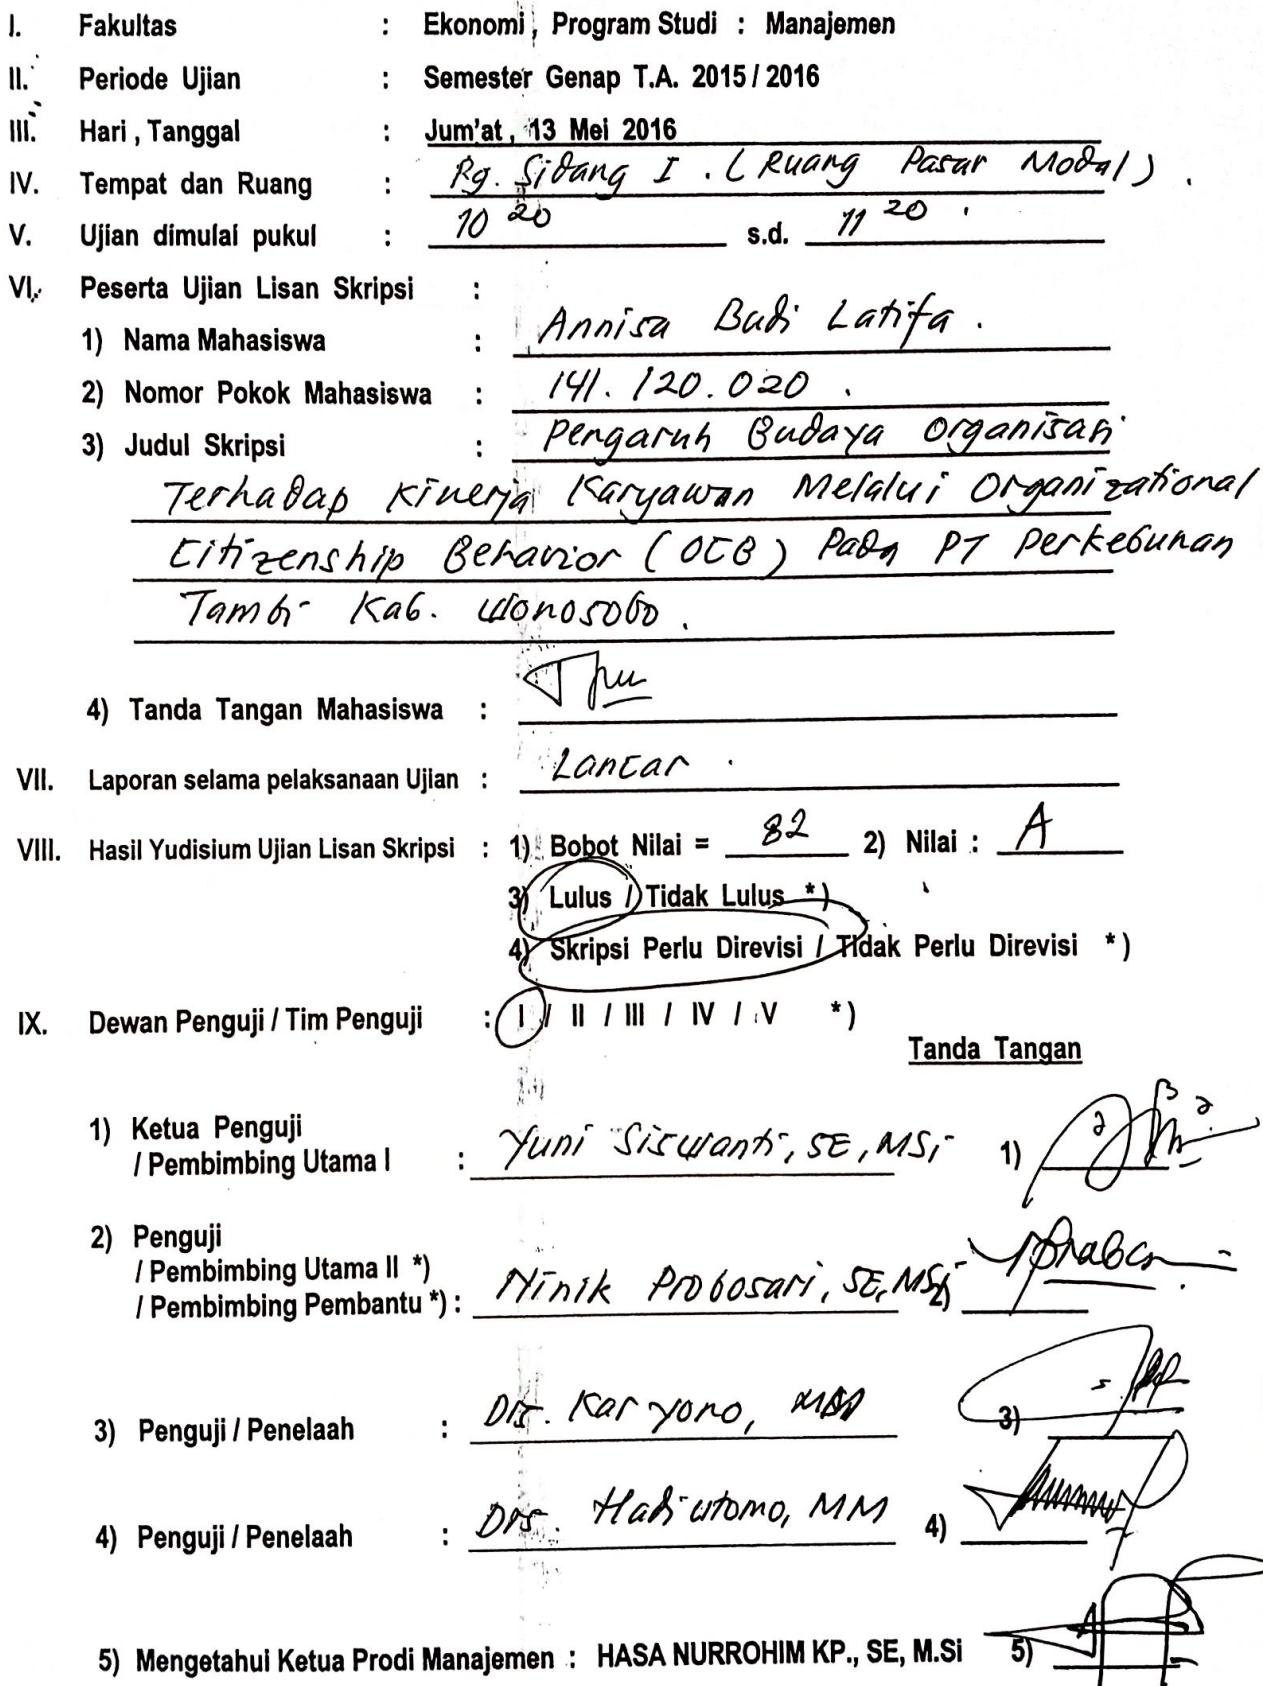 I. Fakultas : Ekonomi, Program Studi : Manajemen
II. Periode Ujian : Semester Genap T.A. 2015 / 2016
III. Hari, Tanggal : Jum'at, 13 Mei 2016
IV. Tempat dan Ruang : Rg. Sidang I. (Ruang Pasar Modal).
V. Ujian dimulai pukul : 10 20 s.d. 11 20.
VI. Peserta Ujian Lisan Skripsi :
1) Nama Mahasiswa : Annisa Budi Latifa.
2) Nomor Pokok Mahasiswa : 141.120.020.
3) Judul Skripsi : Pengaruh Budaya Organisasi
Terhadap Kinerja Karyawan Melalui Organizational
Citizenship Behavior (OCB) Pada PT Perkebunan
Tambi Kab. Wonosobo.
4) Tanda Tangan Mahasiswa :
VII. Laporan selama pelaksanaan Ujian : Lancar.
VIII. Hasil Yudisium Ujian Lisan Skripsi : 1) Bobot Nilai = 82 2) Nilai : A
3) Lulus / Tidak Lulus *)
4) Skripsi Perlu Direvisi / Tidak Perlu Direvisi *)
IX. Dewan Penguji / Tim Penguji : I / II / III / IV / V *)
Tanda Tangan
1) Ketua Penguji
/ Pembimbing Utama I : Yuni Siswanti, SE, MSi 1)
2) Penguji
/ Pembimbing Utama II *)
/ Pembimbing Pembantu *) : Ninik Probosari, SE, MSi 2)
3) Penguji / Penelaah : Drs. Karyono, MM 3)
4) Penguji / Penelaah : Drs. Hadi utomo, MM 4)
5) Mengetahui Ketua Prodi Manajemen : HASA NURROHIM KP., SE, M.Si 5)